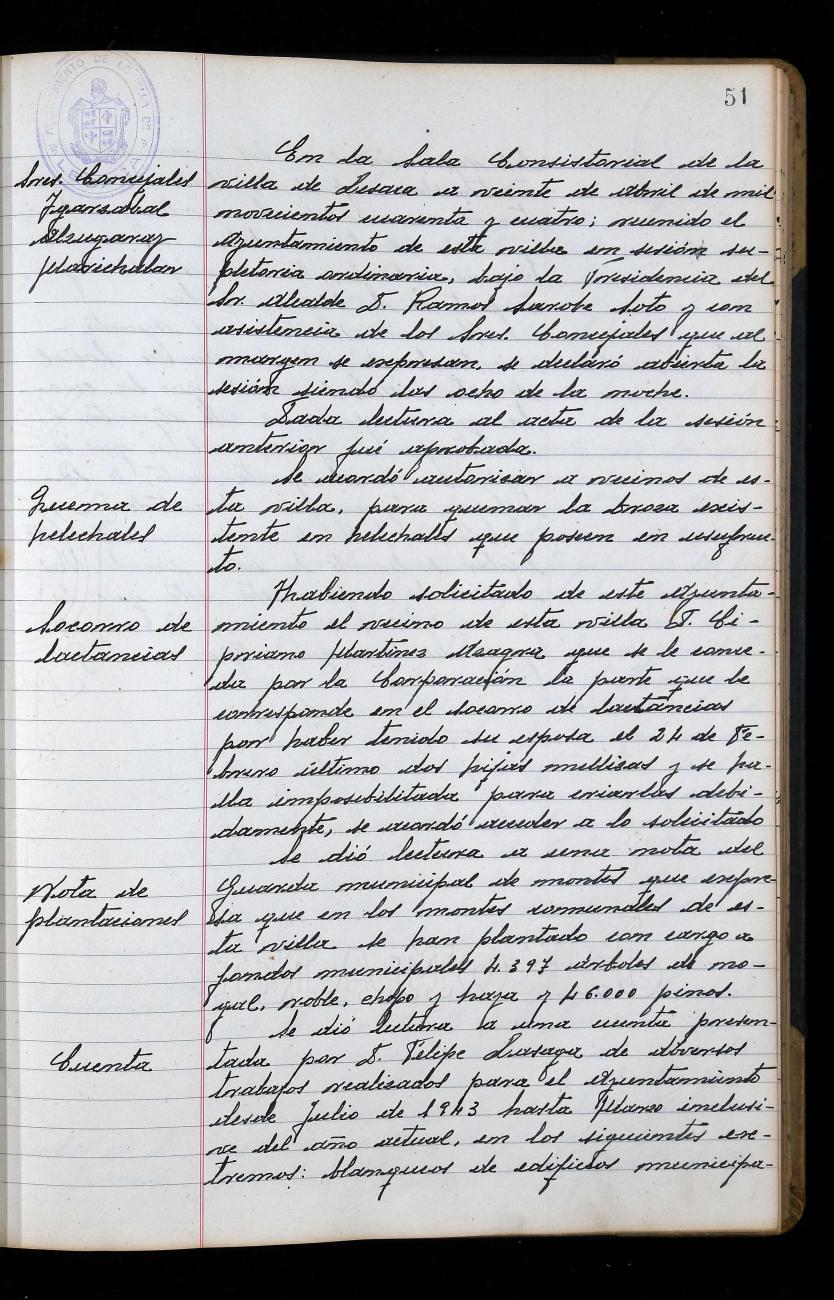 51
AYUNTAMIENTO DE LA VILLA DE
Sres. Concejales
Ygarzabal
Alzugaray
Marichalar
En la Sala Consistorial de la
villa de Lesaca a veinte de Abril de mil
novecientos cuarenta y cuatro; reunido el
Ayuntamiento de esta villa en sesión su-
pletoria ordinaria, bajo la Presidencia del
Sr. Alcalde D. Ramos Sarobe Soto y con
asistencia de los Sres. Concejales que al
margen se expresan, se declaró abierta la
sesión siendo las ocho de la noche.
Dada lectura al acta de la sesión
anterior fué aprobada.
Quema de
helechales
Se acordó autorizar a vecinos de es-
ta villa, para quemar la broza exis-
tente en helechales que poseen en usufruc-
to.
Socorro de
lactancias
Habiendo solicitado de este Ayunta-
miento el vecino de esta villa D. Ci-
priano Martinez Azagra que se le conce-
da por la Corporación la parte que le
corresponde en el socorro de lactancias
por haber tenido su esposa el 24 de Fe-
brero último dos hijas mellizas y se ha-
lla imposibilitada para criarlas debi-
damente, se acordó acceder a lo solicitado
Nota de
plantaciones
Se dió lectura a una nota del
Guarda municipal de montes que expre-
sa que en los montes comunales de es-
ta villa se han plantado con cargo a
fondos municipales 4.397 árboles de no-
gal, roble, chopo y haya y 46.000 pinos.
Cuenta
Se dió lectura a una cuenta presen-
tada por D. Felipe Lasaga de diversos
trabajos realizados para el Ayuntamiento
desde Julio de 1943 hasta Marzo inclusi-
ve del año actual, en los siguientes ex-
tremos: blanqueos de edificios municipa-